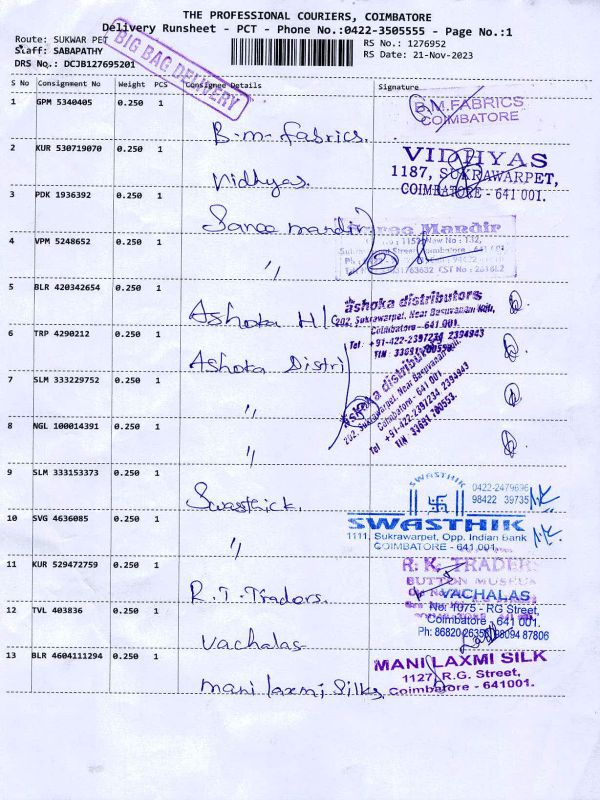 THE PROFESSIONAL COURIERS, COIMBATORE
Delivery Runsheet - PCT - Phone No.:0422-3505555 - Page No.:1
Route: SUKWAR PET
RS No.: 1276952
Staff: SABAPATHY
RS Date: 21-Nov-2023
DRS No.: DCJB127695201
BIG BAG DELIVERY
S No Consignment No Weight PCS Consignee Details Signature
1 GPM 5340405 0.250 1
B.M.FABRICS
COIMBATORE
B.m. fabrics.
2 KUR 530719070 0.250 1
VIDHYAS
1187, SUKRAWARPET,
COIMBATORE - 641 001.
Vidhyas.
3 PDK 1936392 0.250 1
Saree mandir
Saree Mandir
4 VPM 5248652 0.250 1
"
5 BLR 420342654 0.250 1
Ashoka
ashoka distributors
202, Sukrawarpet, Near Basuvanam Koil,
Coimbatore - 641 001.
Tel : +91-422-2397234 2394943
6 TRP 4290212 0.250 1
Ashoka Distri
7 SLM 333229752 0.250 1
"
ashoka distributors
202, Sukrawarpet, Near Basuvanam Koil,
Coimbatore - 641 001.
Tel : +91-422-2397234 2394943
TIN : 33691700553.
8 NGL 100014391 0.250 1
"
9 SLM 333153373 0.250 1
SWASTHIK
0422-2479696
98422 39735
Swasthick.
10 SVG 4636085 0.250 1
SWASTHIK
1111, Sukrawarpet, Opp. Indian Bank
COIMBATORE - 641 001.
"
11 KUR 529472759 0.250 1
R. K. TRADERS
BUTTON MUSEUM
R.T. Tradors.
12 TVL 403836 0.250 1
VACHALAS
No: 1075 - RG Street,
Coimbatore - 641 001.
Ph: 86820 26358, 98094 87806
Vachalas
13 BLR 4604111294 0.250 1
MANI LAXMI SILK
1127, R.G. Street,
Coimbatore - 641001.
mani laxmi Silks